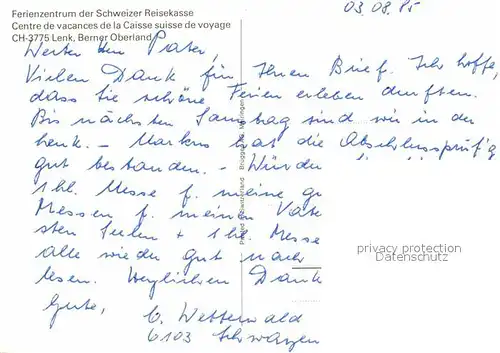 03.08.85
Ferienzentrum der Schweizer Reisekasse
Centre de vacances de la Caisse suisse de voyage
CH-3775 Lenk, Berner Oberland
Werter Herr Pater,
Vielen Dank für Ihren Brief. Ich hoffe,
dass Sie schöne Ferien erleben durften.
Bis nächsten Samstag sind wir in der
Lenk. – Markus hat die Abschlussprüfg
gut bestanden. – Würde
1 hl. Messe f. meine
Messen f. meinen
sten Seelen + 1 hl. Messe
alle wieder gut nach
lesen. Herzlichen Dank
Gute,
Wetterwald
6103
Printed in Switzerland
privacy protection
Datenschutz